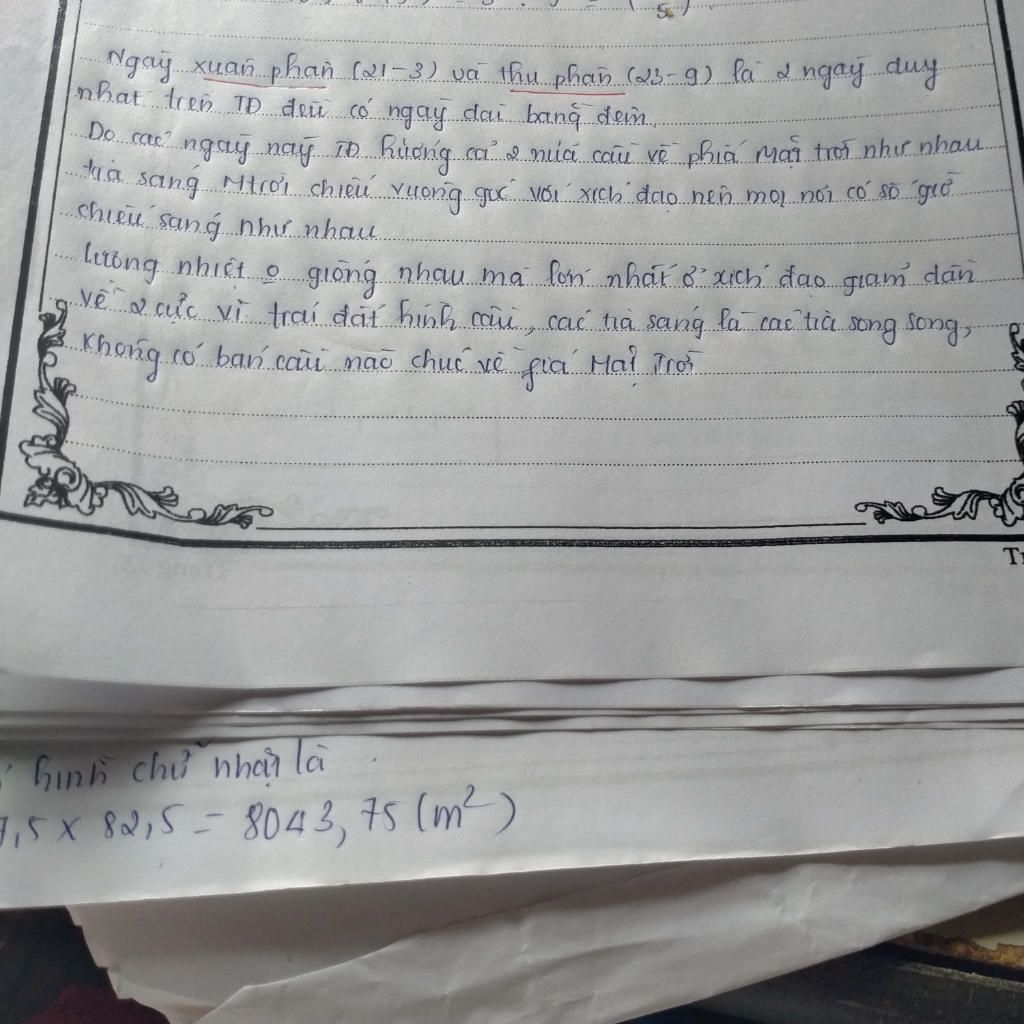 Ngày xuân phân (21-3) và thu phân (23-9) là 2 ngày duy
nhất trên TĐ đều có ngày dài bằng đêm
Do các ngày này TĐ hướng cả 2 nửa cầu về phía Mặt trời như nhau
tia sáng Mtrời chiếu vuông góc với xích đạo nên mọi nơi có số giờ
chiếu sáng như nhau
lượng nhiệt o giống nhau mà lớn nhất ở xích đạo giảm dần
về 2 cực vì trái đất hình cầu, các tia sáng là các tia song song,
không có bán cầu nào chúc về giá Mặt Trời
hình chữ nhật là
7,5 x 82,5 = 8043,75 (m²)